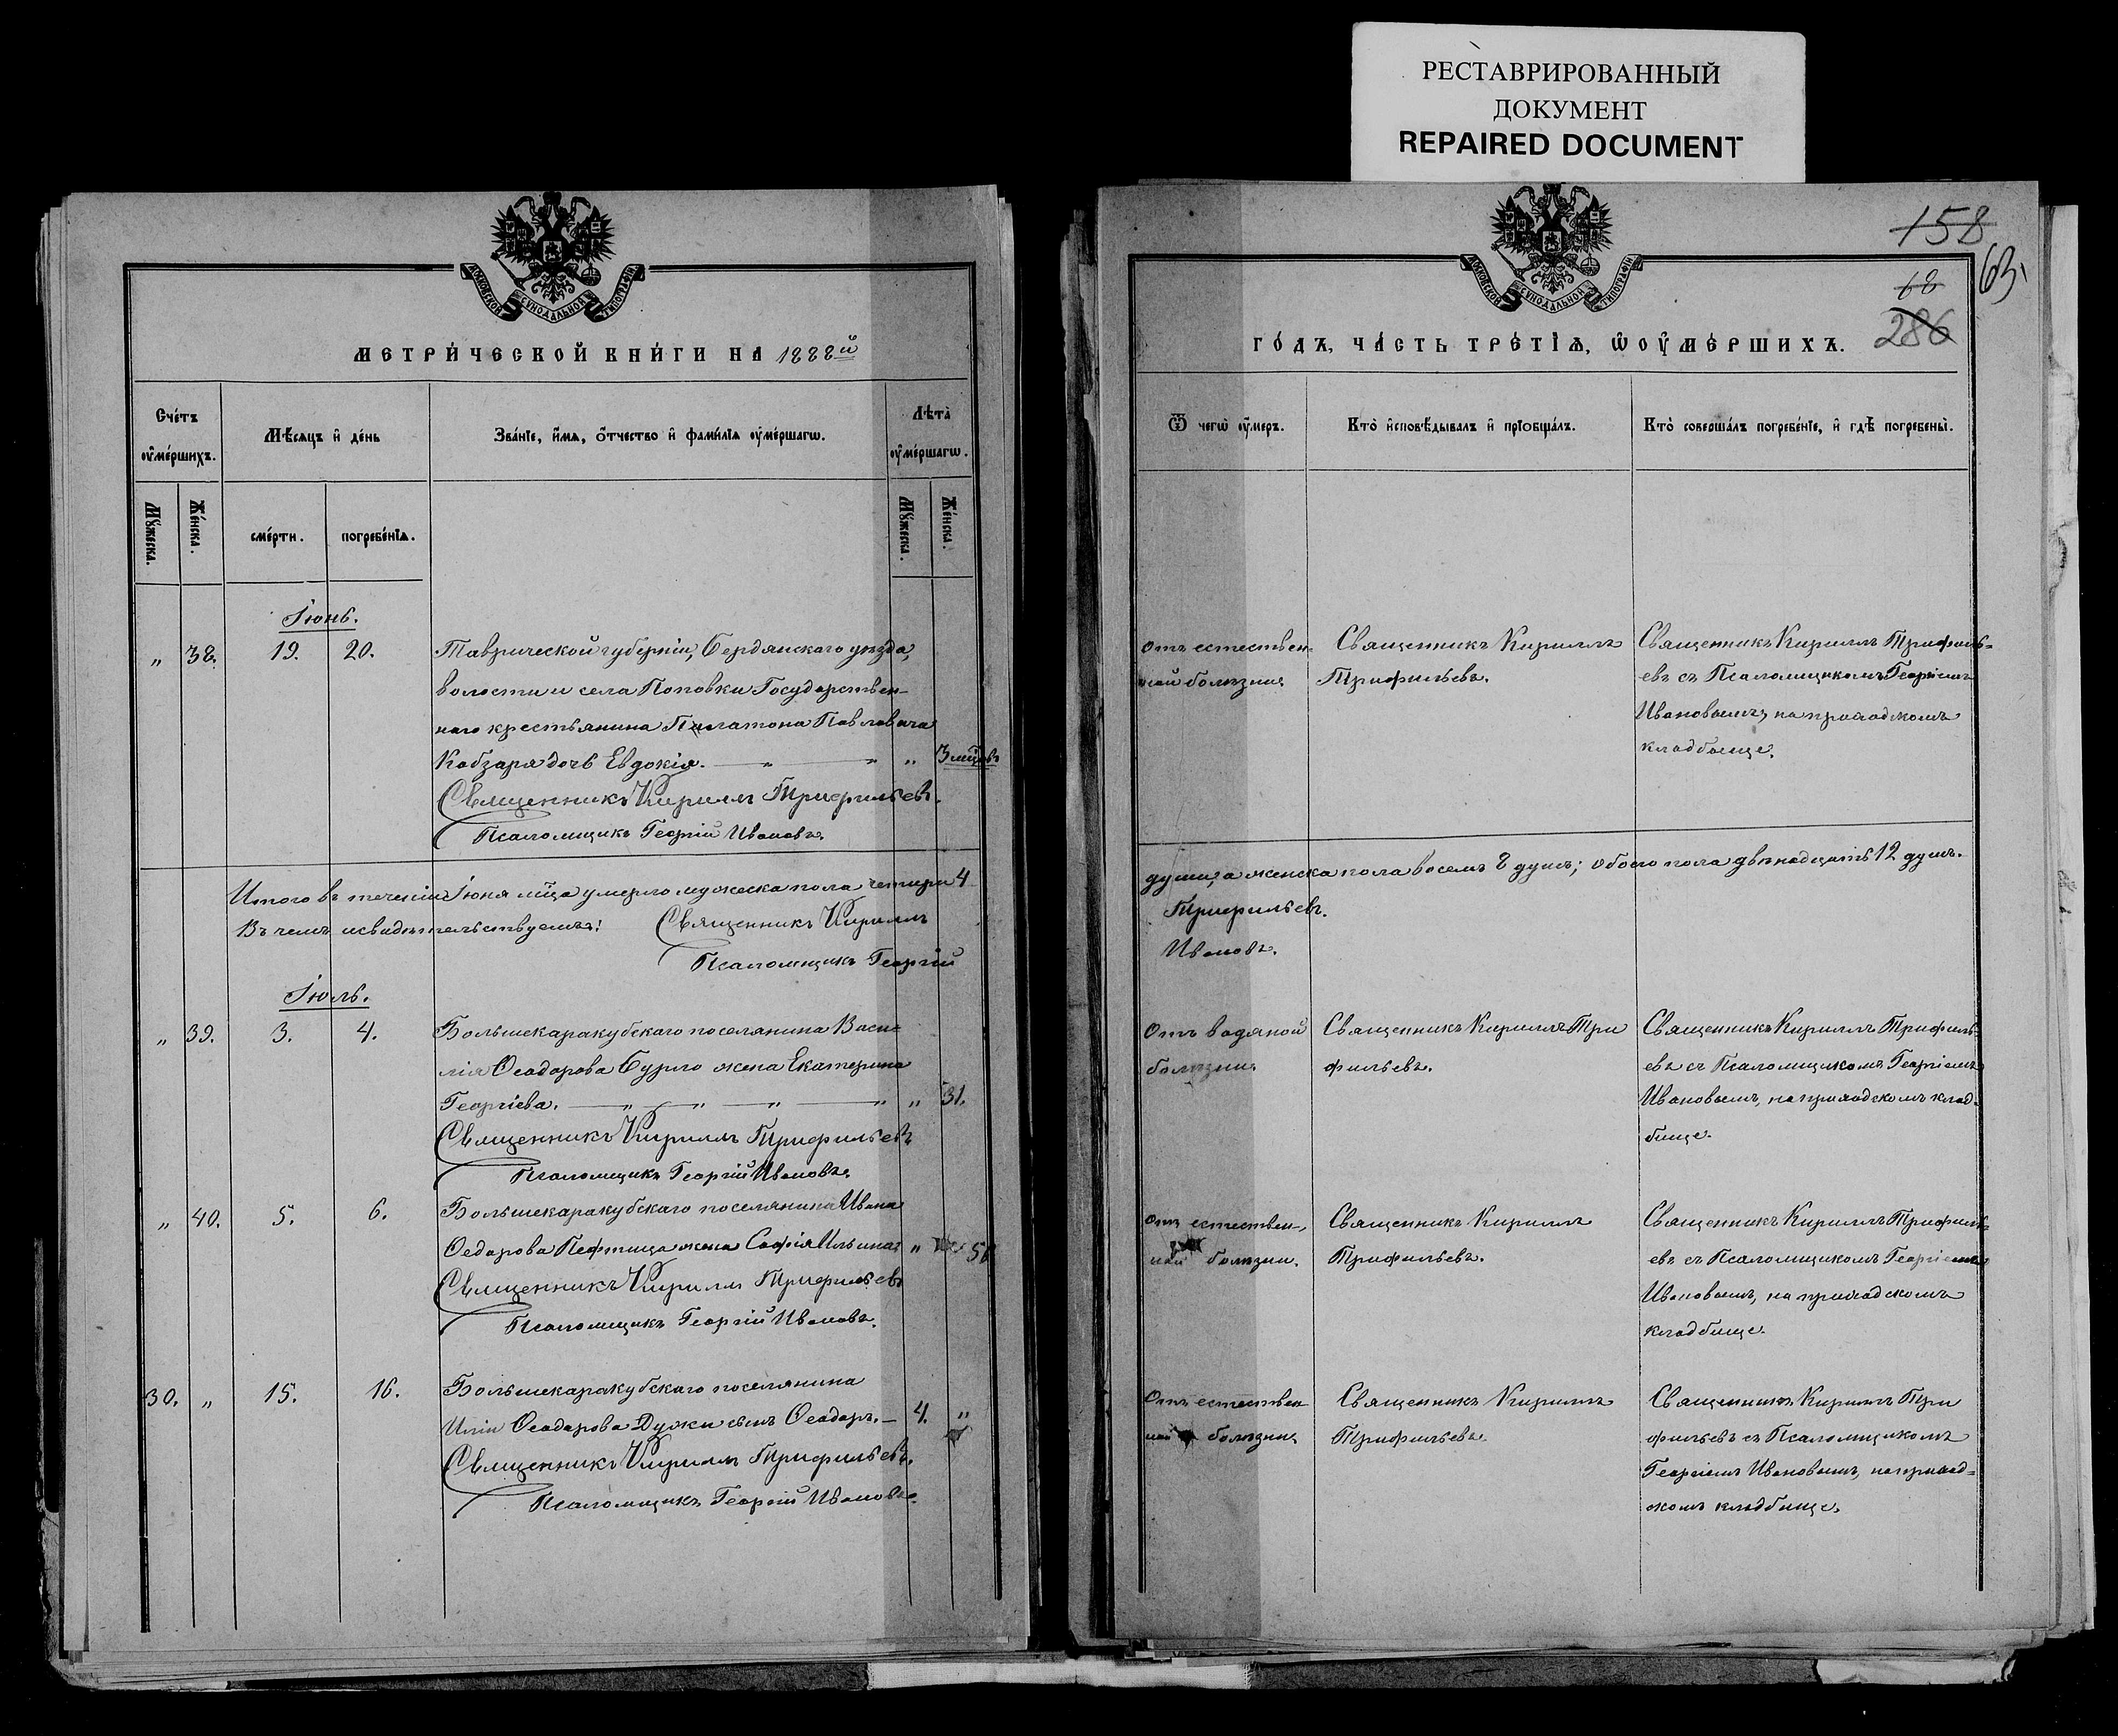 РЕСТАВРИРОВАННЫЙ
ДОКУМЕНТ
REPAIRED DOCUMENT
МОСКОВСКОЙ СУНОДАЛЬНОЙ ТИПОГРАФІИ
МЕТРИ́ЧЕСКОЙ КНИ́ГИ НА 1888й
Счéтъ ᲂу҆мéршихъ.
Мѣ́сяцъ и҆ дéнь
Звáнїе, и҆́мѧ, ѻ҆́тчество и҆ фамѝлїѧ ᲂу҆мéршагѡ.
Лѣ́та ᲂу҆мéршагѡ.
Мꙋ́жеска.
Жéнска.
смéрти.
погребéнїѧ.
Мꙋ́жеска.
Жéнска.
Іюнь.
„ 38. 19. 20. Таврической губерніи, Бердянскаго уѣзда,
волости и села Поповки Государствен-
наго крестьянина Платона Павловича
Кобзаря дочь Евдокія. — „ — „ „ 3 мѣцовъ
Священникъ Кириллъ Трифильевъ.
Псаломщикъ Георгій Ивановъ.
Итого въ теченіи Іюня мѣца умерло мужеска пола четыри 4
Въ чемъ и свидѣтельствуемъ: Священникъ Кириллъ
Псаломщикъ Георгій
Іюль.
„ 39. 3. 4. Большекаракубскаго поселянина Васи-
лія Ѳеодорова Бурло жена Екатерина
Георгіева. — „ — „ — „ — „ „ 31.
Священникъ Кириллъ Трифильевъ
Псаломщикъ Георгій Ивановъ.
„ 40. 5. 6. Большекаракубскаго поселянина Ивана
Ѳедорова Пефтица жена Софія Ильина „
Священникъ Кириллъ Трифильевъ
Псаломщикъ Георгій Ивановъ.
30. „ 15. 16. Большекаракубскаго поселянина
Иліи Ѳеодорова Дужи сынъ Ѳеодоръ. — 4. „
Священникъ Кириллъ Трифильевъ.
Псаломщикъ Георгій Ивановъ.
158
68
63
286
МОСКОВСКОЙ СУНОДАЛЬНОЙ ТИПОГРАФІИ
ГО́ДЪ, ЧА́СТЬ ТРЕ́ТЇѦ, Ѡ ОУ҆МЕ́РШИХЪ.
Ѿ чегѡ̀ ᲂу҆́меръ.
Ктò и҆сповѣ́дывалъ и҆ прїѡбщáлъ.
Ктò совершáлъ погребéнїе, и҆ гдѣ̀ погребены̀.
Отъ естествен- Священникъ Кириллъ Священникъ Кириллъ Трифиль-
ной болѣзни. Трифильевъ. евъ съ Псаломщикомъ Георгіемъ
Ивановымъ, на приходскомъ
кладбище.
души, а женска пола восемъ 8 душъ; обоего пола двѣнадцать 12 душъ.
Трифильевъ.
Ивановъ.
Отъ водяной Священникъ Кириллъ Три Священникъ Кириллъ Трифиль-
болѣзни. фильевъ. евъ съ Псаломщикомъ Георгіемъ
Ивановымъ, на приходскомъ клад-
бище.
Отъ естествен- Священникъ Кириллъ Священникъ Кириллъ Трифиль-
ной болѣзни. Трифильевъ. евъ съ Псаломщикомъ Георгіемъ
Ивановымъ, на приходскомъ
кладбище.
Отъ естествен Священникъ Кириллъ Священникъ Кириллъ Три
ной болѣзни. Трифильевъ. фильевъ съ Псаломщикомъ
Георгіемъ Ивановымъ, на приход-
скомъ кладбище.